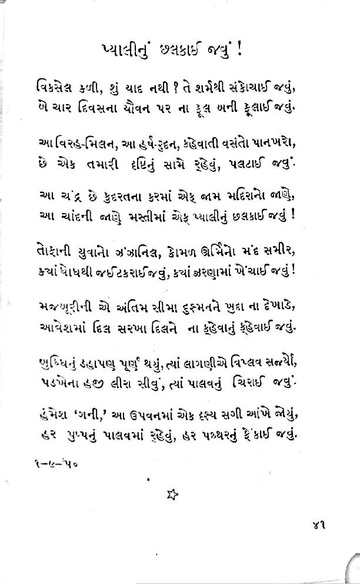 પ્યાલીનું છલકાઈ જવું !
વિકસેલ કળી, શું યાદ નથી ? તે શર્મથી સંકોચાઈ જવું,
બે ચાર દિવસના યૌવન પર ના ફૂલ બની ફૂલાઈ જવું.
આ વિરહ-મિલન, આ હર્ષ-રૂદન, કહેવાતી વસંતો પાનખરો,
છે એક તમારી દૃષ્ટિનું સામે રહેવું, પલટાઈ જવું.
આ ચંદ્ર છે કુદરતના કરમાં એક જામ મદિરાનો જાણે,
આ ચાંદની જાણે મસ્તીમાં એક પ્યાલીનું છલકાઈ જવું !
તોફાની યુવાનો ઝંઝાનિલ, કોમળ ઊર્મિનો મંદ સમીર,
ક્યાં ધોધથી જઈ ટકરાઈ જવું, ક્યાં ઝરણામાં ખેંચાઈ જવું !
મજબૂરીની એ અંતિમ સીમા દુશ્મનને ખુદા ના દેખાડે,
આવેશમાં દિલ સરખા દિલને ના કહેવાનું કહેવાઈ જવું.
બુધ્ધિનું ડહાપણ પૂર્ણ થયું, ત્યાં લાગણીએ વિપ્લવ સર્જ્યો,
પડખેના હજી લીરા સીવું, ત્યાં પાલવનું ચિરાઈ જવું.
હંમેશ ‘ગની,’ આ ઉપવનમાં એક દૃશ્ય સગી આંખે જોયું,
હર પુષ્પનું પાલવમાં રહેવું, હર પથ્થરનું ફેંકાઈ જવું.
૧-૯-૫૦
૪૧